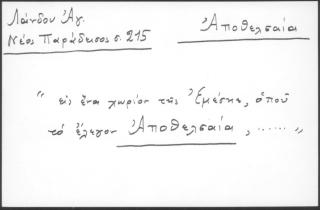 Λάνδου Ἀγ.
Νέος Παράδεισος σ. 215
Ἀποθελσαία
“ εἰς ἕνα χωρίον τῆς Ἐμέσης, ὁποῦ
τὸ ἔλεγον Ἀποθελσαία, ...... „